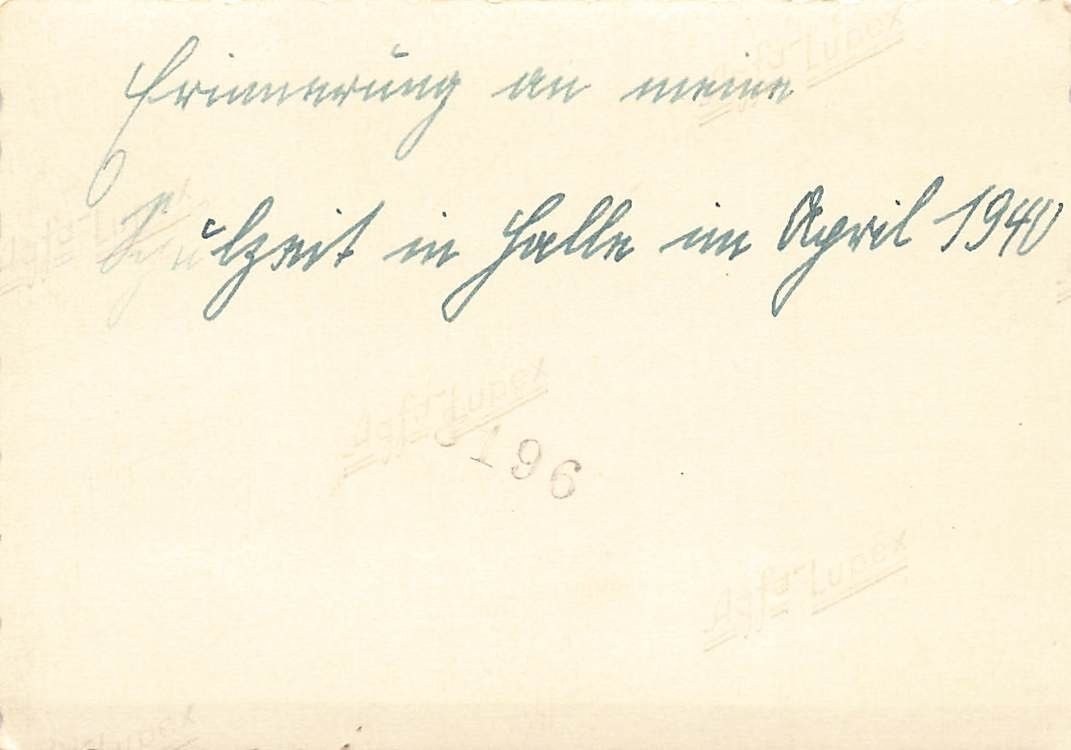 Agfa-Lupex
Erinnerung an meine
Schulzeit in Halle im April 1940
Agfa-Lupex
Agfa-Lupex
196
Agfa-Lupex
Agfa-Lupex